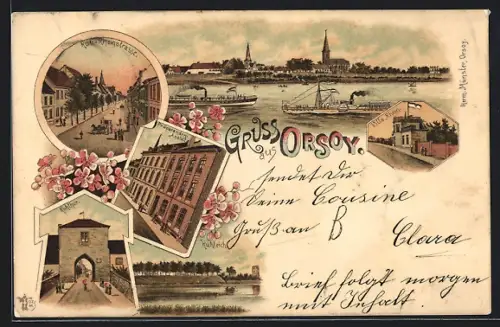 Kuhlenstrasse.
Herm. Münster, Orsoy.
GRUSS
aus
ORSOY.
Kuhteich
sendet Dir
Deine Cousine
Gruß an B
Clara
Brief folgt morgen
mit Inhalt.